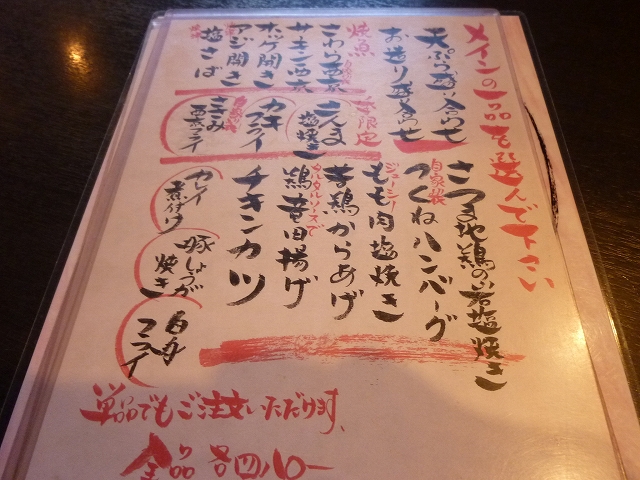 メインの一品を選んで下さい
天ぷら盛り合わせ
お造り盛合わせ
焼魚
さわら西京
サーモン西京
ホッケ開き
アジ開き
塩さば
季限定
さんま塩焼き
カキフライ
自家製
ささみ
フライ
さつま地鶏の岩塩焼き
自家製
つくねハンバーグ
ジューシー
もも肉塩焼き
若鶏からあげ
タルタルソースで
鶏竜田揚げ
チキンカツ
カレイ煮付け
豚しょうが焼き
フライ
単品でもご注文いただけます、
全品